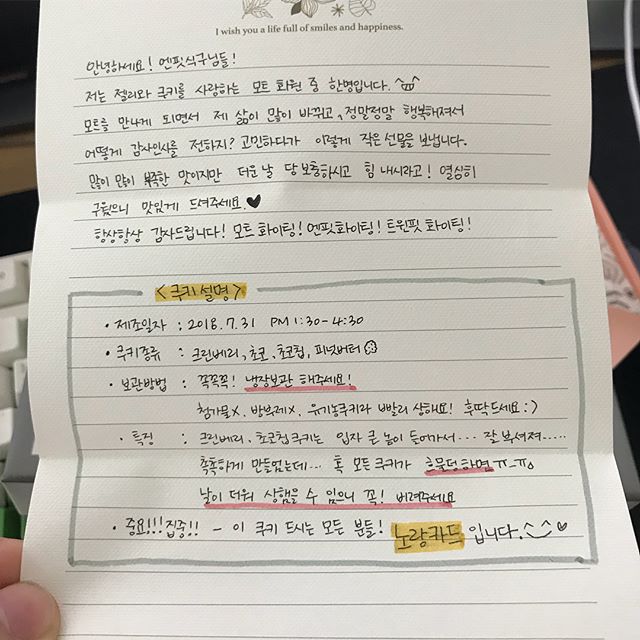 I wish you a life full of smiles and happiness.
안녕하세요! 엔핏식구님들!
저는 젤리와 쿠키를 사랑하는 모트 회원 중 한명입니다.
모트를 만나게 되면서 제 삶이 많이 바뀌고, 정말정말 행복해져서
어떻게 감사인사를 전하지? 고민하다가 이렇게 작은 선물을 보냅니다.
많이 많이 부족한 맛이지만 더운날 당 보충하시고 힘 내시라고! 열심히
구웠으니 맛있게 드셔주세요.♥
항상항상 감사드립니다! 모트 화이팅! 엔핏화이팅! 트윈핏 화이팅!
<쿠키 설명>
· 제조일자 : 2018.7.31 PM 1:30-4:30
· 쿠키종류 : 크린베리, 초코, 초코칩, 피넛버터
· 보관방법 : 꼭꼭꼭! 냉장보관 해주세요!
첨가물X, 방부제X, 유기농쿠키라 빨리 상해요! 후딱드세요:)
· 특징 : 크린베리, 초코칩쿠키는 입자 큰 놈이 들어가서... 잘 부셔져.....
촉촉하게 만들었는데... 혹 모든쿠키가 흐물텅하면ㅠ_ㅠ
날이 더워 상했을 수 있으니 꼭! 버려주세요
· 중요!!! 집중!! - 이 쿠키 드시는 모든 분들! 노랑카드 입니다.^_^♡